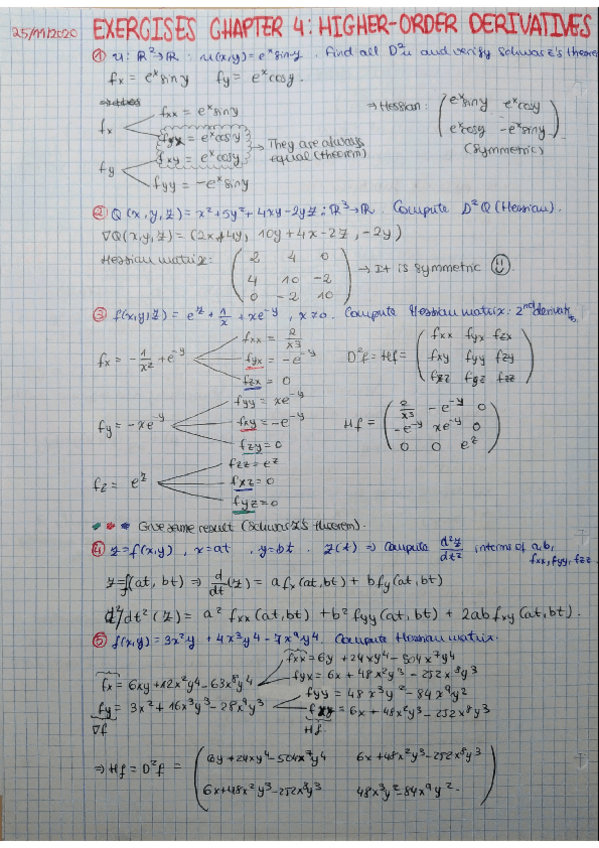 25/11/2020 EXERCISES CHAPTER 4: HIGHER-ORDER DERIVATIVES
① u: ℝ²→ℝ : u(x,y) = eˣ sin y. Find all D²u and verify Schwarz's theorem
fx = eˣ sin y fy = eˣ cos y.
fx fxx = eˣ sin y
fyx = eˣ cos y
→ They are always equal (theorem)
fy fxy = eˣ cos y
fyy = -eˣ sin y
→ Hessian: ( eˣ sin y eˣ cos y
eˣ cos y -eˣ sin y )
(symmetric)
② Q(x,y,z) = x² + 5y² + 4xy - 2yz ; ℝ³→ℝ. Compute D²Q (Hessian).
∇Q(x,y,z) = (2x+4y, 10y+4x-2z, -2y)
Hessian matrix: ( 2 4 0
4 10 -2
0 -2 10 ) → It is symmetric ☺.
③ f(x,y,z) = e^z + 1/x + xe^-y, x≠0. Compute Hessian matrix: 2nd derivat.
fx = -1/x² + e^-y
fxx = 2/x³
fyx = -e^-y
fzx = 0
D²f = Hf = ( fxx fyx fzx
fxy fyy fzy
fxz fyz fzz )
fy = -xe^-y
fyy = xe^-y
fxy = -e^-y
fzy = 0
Hf = ( 2/x³ -e^-y 0
-e^-y xe^-y 0
0 0 e^z )
fz = e^z
fzz = e^z
fxz = 0
fyz = 0
Give same result (Schwarz's theorem).
④ z = f(x,y), x = at, y = bt. z(t) ⇒ Compute d²z/dt² in terms of a, b,
fxx, fyy, fzz
z = f(at, bt) ⇒ d/dt (z) = a fx (at, bt) + b fy (at, bt)
d²/dt² (z) = a² fxx (at, bt) + b² fyy (at, bt) + 2ab fxy (at, bt).
⑤ f(x,y) = 3x²y + 4x³y⁴ - 7x⁹y⁴. Compute Hessian matrix.
fxx = 6y + 24xy⁴ - 504x⁷y⁴
fx = 6xy + 12x²y⁴ - 63x⁸y⁴
fyx = 6x + 48x²y³ - 252x⁸y³
fy = 3x² + 16x³y³ - 28x⁹y³
fyy = 48x³y² - 84x⁹y²
fxy = 6x + 48x²y³ - 252x⁸y³
∇f Hf
⇒ Hf = D²f = ( 6y+24xy⁴-504x⁷y⁴ 6x+48x²y³-252x⁸y³
6x+48x²y³-252x⁸y³ 48x³y²-84x⁹y². )